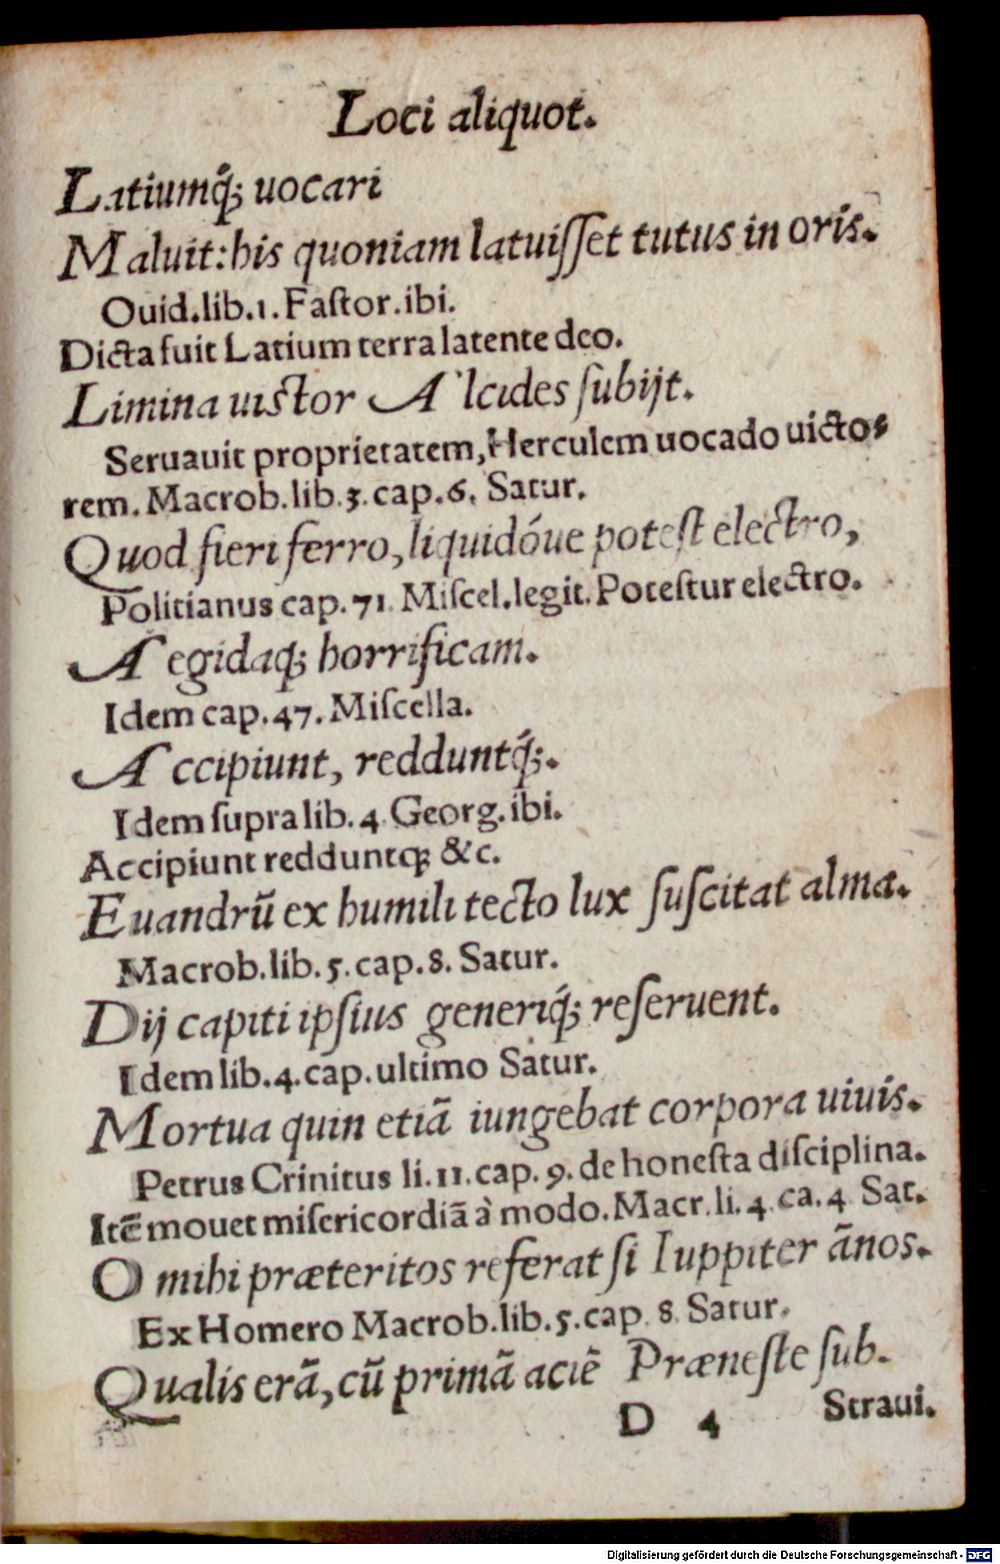 Loci aliquot.
Latiumq́; uocari
Maluit: his quoniam latuiſſet tutus in orís.
Ouid.lib.1.Faſtor.ibi.
Dicta fuit Latium terra latente deo.
Limina uictor Alcides ſubijt.
Seruauit proprietatem, Herculem uocādo uicto-
rem. Macrob.lib.3.cap.6. Satur.
Quod fieri ferro, liquidóue poteſt electro,
Politianus cap.71. Miſcel.legit. Poteſtur electro.
Aegidaq; horrificam.
Idem cap.47. Miſcella.
Accipiunt, redduntq́;.
Idem ſupra lib. 4 Georg. ibi.
Accipiunt redduntq; &c.
Euandrū ex humili tecto lux ſuſcitat alma.
Macrob.lib.5.cap.8. Satur.
Dij capiti ipſius generiq́; reſeruent.
Idem lib.4.cap.ultimo Satur.
Mortua quin etiā iungebat corpora uiuis.
Petrus Crinitus li.11.cap.9. de honeſta diſciplina.
Itē mouet miſericordiā à modo. Macr.li.4.ca.4 Sat.
O mihi præteritos referat ſi Iuppiter ānos.
Ex Homero Macrob.lib.5.cap.8. Satur.
Qualis erā, cū primā aciē Præneſte ſub.
D 4 Straui.
Digitalisierung gefördert durch die Deutsche Forschungsgemeinschaft - DFG